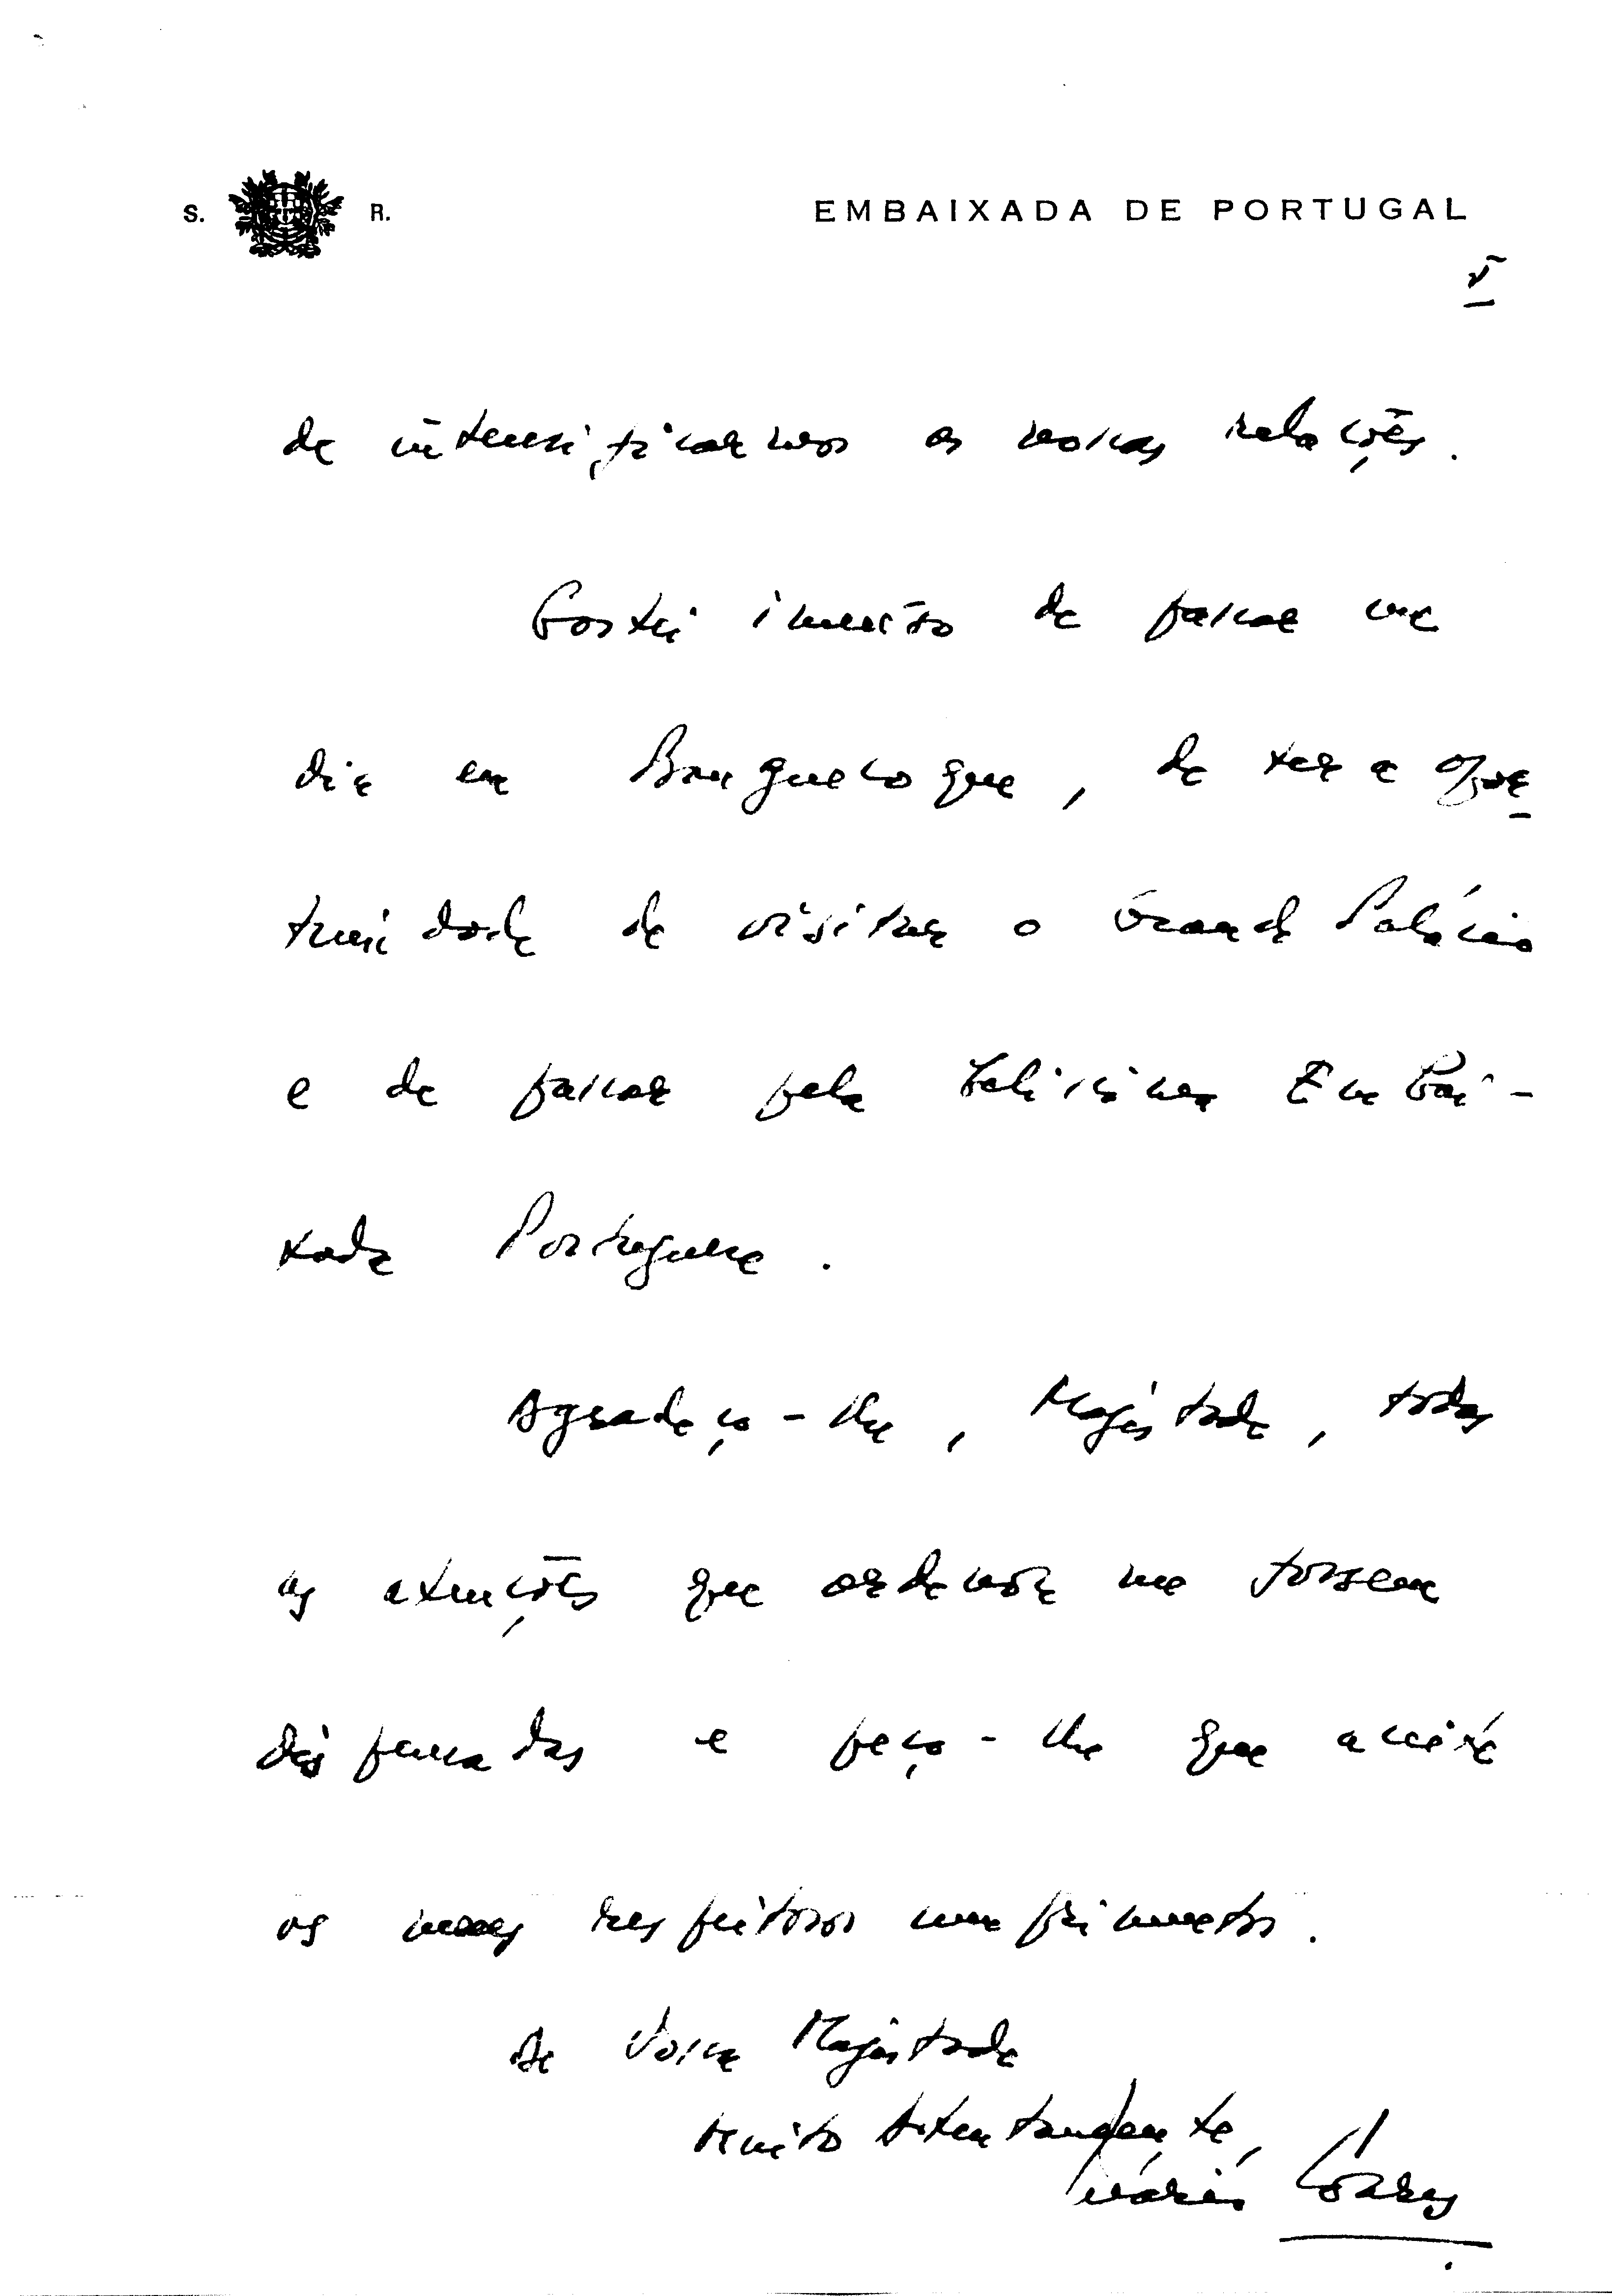 S. R. EMBAIXADA DE PORTUGAL
V
de intensificarmos as nossas relações.
Gostei imenso de passar um
dia em Banguecoque, de ter a opor-
tunidade de visitar o Grande Palácio
e de passar pela belíssima Embai-
xada Portuguesa.
Agradeço-lhe, Majestade, todas
as atenções que ordenou me fossem
dispensadas e peço-lhe que aceite
os meus respeitosos cumprimentos.
De Vossa Majestade
Muito Atentamente,
Mário Soares